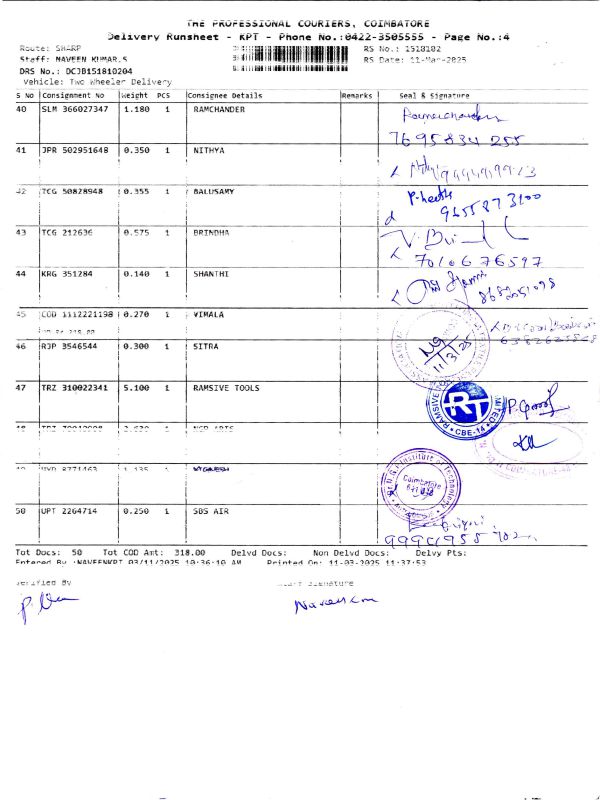 THE PROFESSIONAL COURIERS, COIMBATORE
Delivery Runsheet - KPT - Phone No.:0422-3505555 - Page No.:4
Route: SHARP
RS No.: 1518102
Staff: NAVEEN KUMAR.S
RS Date: 11-Mar-2025
DRS No.: DCJB151810204
Vehicle: Two Wheeler Delivery
S No Consignment No Weight PCS Consignee Details Remarks Seal & Signature
40 SLM 366027347 1.180 1 RAMCHANDER
7695834 255
41 JPR 502951648 0.350 1 NITHYA
42 TCG 50828948 0.355 1 BALUSAMY
9655873100
43 TCG 212636 0.575 1 BRINDHA
7010676597
44 KRG 351284 0.140 1 SHANTHI
45 COD 1112221198 0.270 1 VIMALA
46 RJP 3546544 0.300 1 SITRA
11/3/25
47 TRZ 310022341 5.100 1 RAMSIVE TOOLS
RAMSIVE
RT
CBE-14
48 1 NGP ARTS
49 1 VIGNESH
Institute of Technology
Coimbatore
50 UPT 2264714 0.250 1 SBS AIR
Tot Docs: 50 Tot COD Amt: 318.00 Delvd Docs: Non Delvd Docs: Delvy Pts:
Entered By :NAVEENKPT 03/11/2025 10:36:10 AM Printed On: 11-03-2025 11:37:53
Verified By
Staff Signature